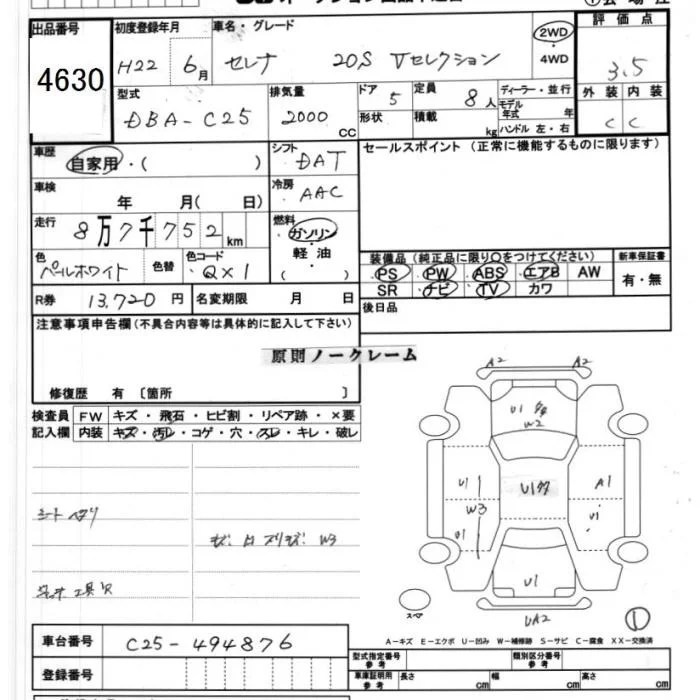 出品番号 初度登録年月 車名・グレード 評価点
4630 H22 6月 セレナ 20S Vセレクション 2WD 4WD 3.5
型式 排気量 ドア 定員 ディーラー・並行 外装 内装
DBA-C25 2000 CC 5 8人 モデル年式 年 C C
形状 積載 kg ハンドル 左・右
車歴 自家用・( ) シフト DAT セールスポイント (正常に機能するものに限ります)
車検 年 月( 日) 冷房 AAC
走行 8万7千752km 燃料 ガソリン・軽油・( )
色 パールホワイト 色替 色コード QX1
装備品 (純正品に限り○をつけてください) 新車保証書
PS PW ABS エアB AW 有・無
SR ナビ TV カワ
R券 13,720円 名変期限 月 日 後日品
注意事項申告欄(不具合内容等は具体的に記入して下さい)
原則ノークレーム
修復歴 有 〔箇所 〕
検査員 FW キズ・飛石・ヒビ割・リペア跡・×要
記入欄 内装 キズ・汚レ・コゲ・穴・スレ・キレ・破レ
A2 A2
U1
W2
U1 U1 A1
W3 U1
U1
シートヘタリ
W3
U1
スペア UA2 1
A-キズ E-エクボ U-凹み W-補修跡 S-サビ C-腐食 XX-交換済
車台番号 C25-494876
型式指定番号 参考 類別区分番号 参考
登録番号 車庫証明用 参考 長さ cm 幅 cm 高さ cm